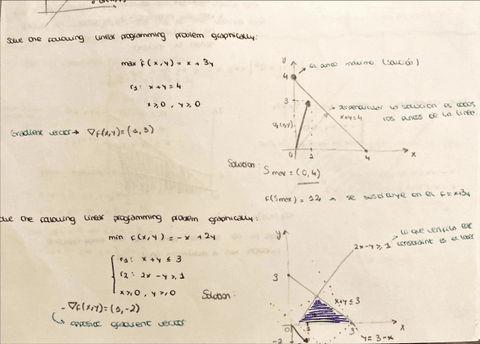 Solve the following linear programming problem graphically:
max f(x,y) = x + 3y
r1: x+y=4
x≥0, y≥0
Gradient vector → ∇f(x,y)=(1,3)
y
4
El único máximo (solución)
3
x+y=4
0
2
4
x
Solution: Smax=(0,4)
f(Smax) = 12 → se sustituye en el f=x+3y
Solve the following linear programming problem graphically:
min f(x,y) = -x + 2y
r1: x+y ≤ 3
r2: 2x-y ≥ 1
x≥0, y≥0
-∇f(x,y) = (1,-2)
opposite gradient vector
Solution:
y
2x-y≥1
lo que verifica este
constraint es el
3
x+y≤3
x
-2
y=3-x